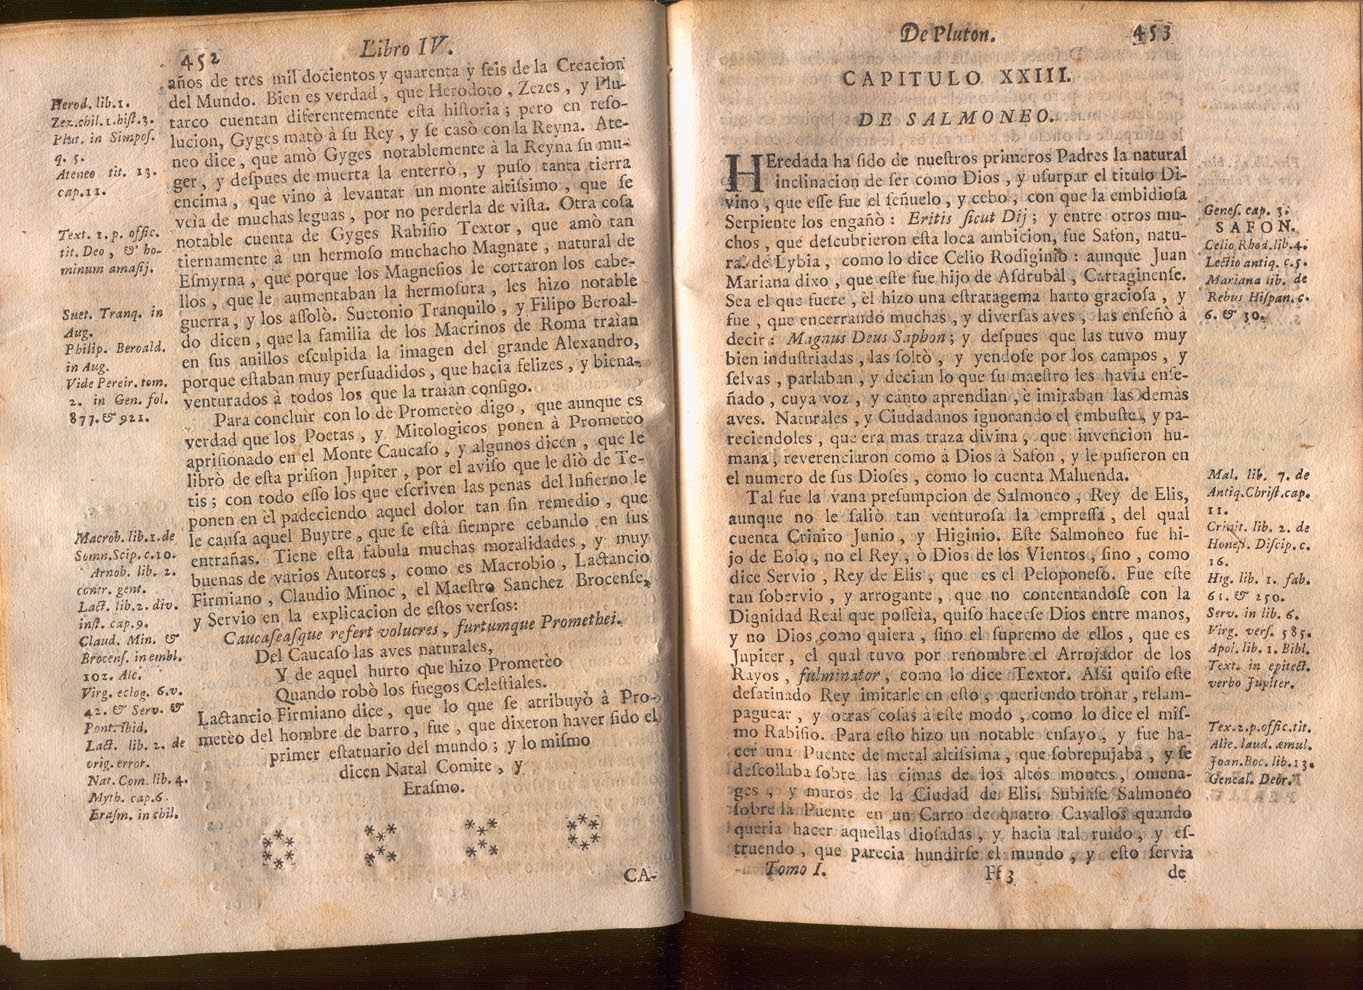 452
Libro IV.
años de tres mil docientos y quarenta y ſeis de la Creacion
del Mundo. Bien es verdad, que Herodoto, Zezes, y Plu-
tarco cuentan diferentemente eſta hiſtoria; pero en reſo-
lucion, Gyges matò à ſu Rey, y ſe casò con la Reyna. Ate-
neo dice, que amò Gyges notablemente à la Reyna ſu mu-
ger, y deſpues de muerta la enterrò, y puſo tanta tierra
encima, que vino à levantar un monte altiſsimo, que ſe
veìa de muchas leguas, por no perderla de viſta. Otra coſa
notable cuenta de Gyges Rabiſio Textor, que amò tan
tiernamente à un hermoſo muchacho Magnate, natural de
Eſmyrna, que porque los Magneſios le cortaron los cabe-
llos, que le aumentaban la hermoſura, les hizo notable
guerra, y los aſſolò. Suetonio Tranquilo, y Filipo Beroal-
do dicen, que la familia de los Macrinos de Roma traìan
en ſus anillos eſculpida la imagen del grande Alexandro,
porque eſtaban muy perſuadidos, que hacia felizes, y biena-
venturados à todos los que la traìan conſigo.
Para concluir con lo de Prometèo digo, que aunque es
verdad que los Poetas, y Mitologicos ponen à Prometèo
apriſionado en el Monte Caucaſo, y algunos dicen, que le
librò de eſta priſion Jupiter, por el aviſo que le diò de Te-
tis; con todo eſſo los que eſcriven las penas del Infierno le
ponen en èl padeciendo aquel dolor tan ſin remedio, que
le cauſa aquel Buytre, que ſe eſtà ſiempre cebando en ſus
entrañas. Tiene eſta fabula muchas moralidades, y muy
buenas de varios Autores, como es Macrobio, Lactancio
Firmiano, Claudio Minoc, el Maeſtro Sanchez Brocenſe,
y Servio en la explicacion de eſtos verſos:
Caucaſeaſque refert volucres, furtumque Promethei.
Del Caucaſo las aves naturales,
Y de aquel hurto que hizo Prometèo
Quando robò los fuegos Celeſtiales.
Lactancio Firmiano dice, que lo que ſe atribuyò à Pro-
metèo del hombre de barro, fue, que dixeron haver ſido el
primer eſtatuario del mundo; y lo miſmo
dicen Natal Comite, y
Eraſmo.
CA-
Herod. lib. 1.
Zez. chil. 1. hiſt. 3.
Plut. in Simpoſ.
q. 5.
Ateneo tit. 13.
cap. 11.
Text. 1. p. offic.
tit. Deo, & ho-
minum amaſij.
Suet. Tranq. in
Aug.
Philip. Beroald.
in Aug.
Vide Pereir. tom.
2. in Gen. fol.
877. & 921.
Macrob. lib. 1. de
Somn. Scip. c. 10.
Arnob. lib. 2.
contr. gent.
Lact. lib. 2. div.
inſt. cap. 9.
Claud. Min. &
Brocenſ. in embl.
102. Alc.
Virg. eclog. 6. v.
42. & Serv. &
Pont. ibid.
Lact. lib. 2. de
orig. error.
Nat. Com. lib. 4.
Myth. cap. 6.
Eraſm. in chil.
De Pluton.
453
CAPITULO XXIII.
DE SALMONEO.
HEredada ha ſido de nueſtros primeros Padres la natural
inclinacion de ſer como Dios, y uſurpar el titulo Di-
vino, que eſſe fue el ſeñuelo, y cebo, con que la embidioſa
Serpiente los engañò: Eritis ſicut Dij; y entre otros mu-
chos, que deſcubrieron eſta loca ambicion, fue Safon, natu-
ral de Lybia, como lo dice Celio Rodiginio: aunque Juan
Mariana dixo, que eſte fue hijo de Aſdrubàl, Cartaginenſe.
Sea el que fuere, èl hizo una eſtratagema harto gracioſa, y
fue, que encerrando muchas, y diverſas aves, las enſeñò à
decir: Magnus Deus Saphon; y deſpues que las tuvo muy
bien induſtriadas, las ſoltò, y yendoſe por los campos, y
ſelvas, parlaban, y decian lo que ſu maeſtro les havia enſe-
ñado, cuya voz, y canto aprendian, è imitaban las demàs
aves. Naturales, y Ciudadanos ignorando el embuſte, y pa-
reciendoles, que era mas traza divina, que invencion hu-
mana, reverenciaron como à Dios à Safon, y le puſieron en
el numero de ſus Dioſes, como lo cuenta Maluenda.
Tal fue la vana preſumpcion de Salmoneo, Rey de Elis,
aunque no le ſaliò tan venturoſa la empreſſa, del qual
cuenta Crinito Junio, y Higinio. Eſte Salmoneo fue hi-
jo de Eolo, no el Rey, ò Dios de los Vientos, ſino, como
dice Servio, Rey de Elis, que es el Peloponeſo. Fue eſte
tan ſobervio, y arrogante, que no contentandoſe con la
Dignidad Real que poſſeìa, quiſo hacerſe Dios entre manos,
y no Dios como quiera, ſino el ſupremo de ellos, que es
Jupiter, el qual tuvo por renombre el Arrojador de los
Rayos, fulminator, como lo dice Textor. Aſsi quiſo eſte
deſatinado Rey imitarle en eſto, queriendo tronar, relam-
paguear, y otras coſas à eſte modo, como lo dice el miſ-
mo Rabiſio. Para eſto hizo un notable enſayo, y fue ha-
cer una Puente de metal altiſsima, que ſobrepujaba, y ſe
deſcollaba ſobre las cimas de los altos montes, omena-
ges, y muros de la Ciudad de Elis. Subiaſe Salmoneo
ſobre la Puente en un Carro de quatro Cavallos quando
queria hacer aquellas dioſadas, y hacia tal ruido, y eſ-
truendo, que parecia hundirſe el mundo, y eſto ſervia
Tomo I.
Ff 3
de
Geneſ. cap. 3.
SAFON.
Celio Rhod. lib. 4.
Lectio antiq. c. 5.
Mariana lib. de
Rebus Hiſpan. c.
6. & 30.
Mal. lib. 7. de
Antiq. Chriſt. cap.
11.
Crinit. lib. 2. de
Honeſt. Diſcip. c.
16.
Hig. lib. 1. fab.
61. & 250.
Serv. in lib. 6.
Virg. verſ. 585.
Apol. lib. 1. Bibl.
Text. in epitect.
verbo Jupiter.
Tex. 2. p. offic. tit.
Alie. laud. æmul.
Joan. Boc. lib. 13.
Geneal. Deor.